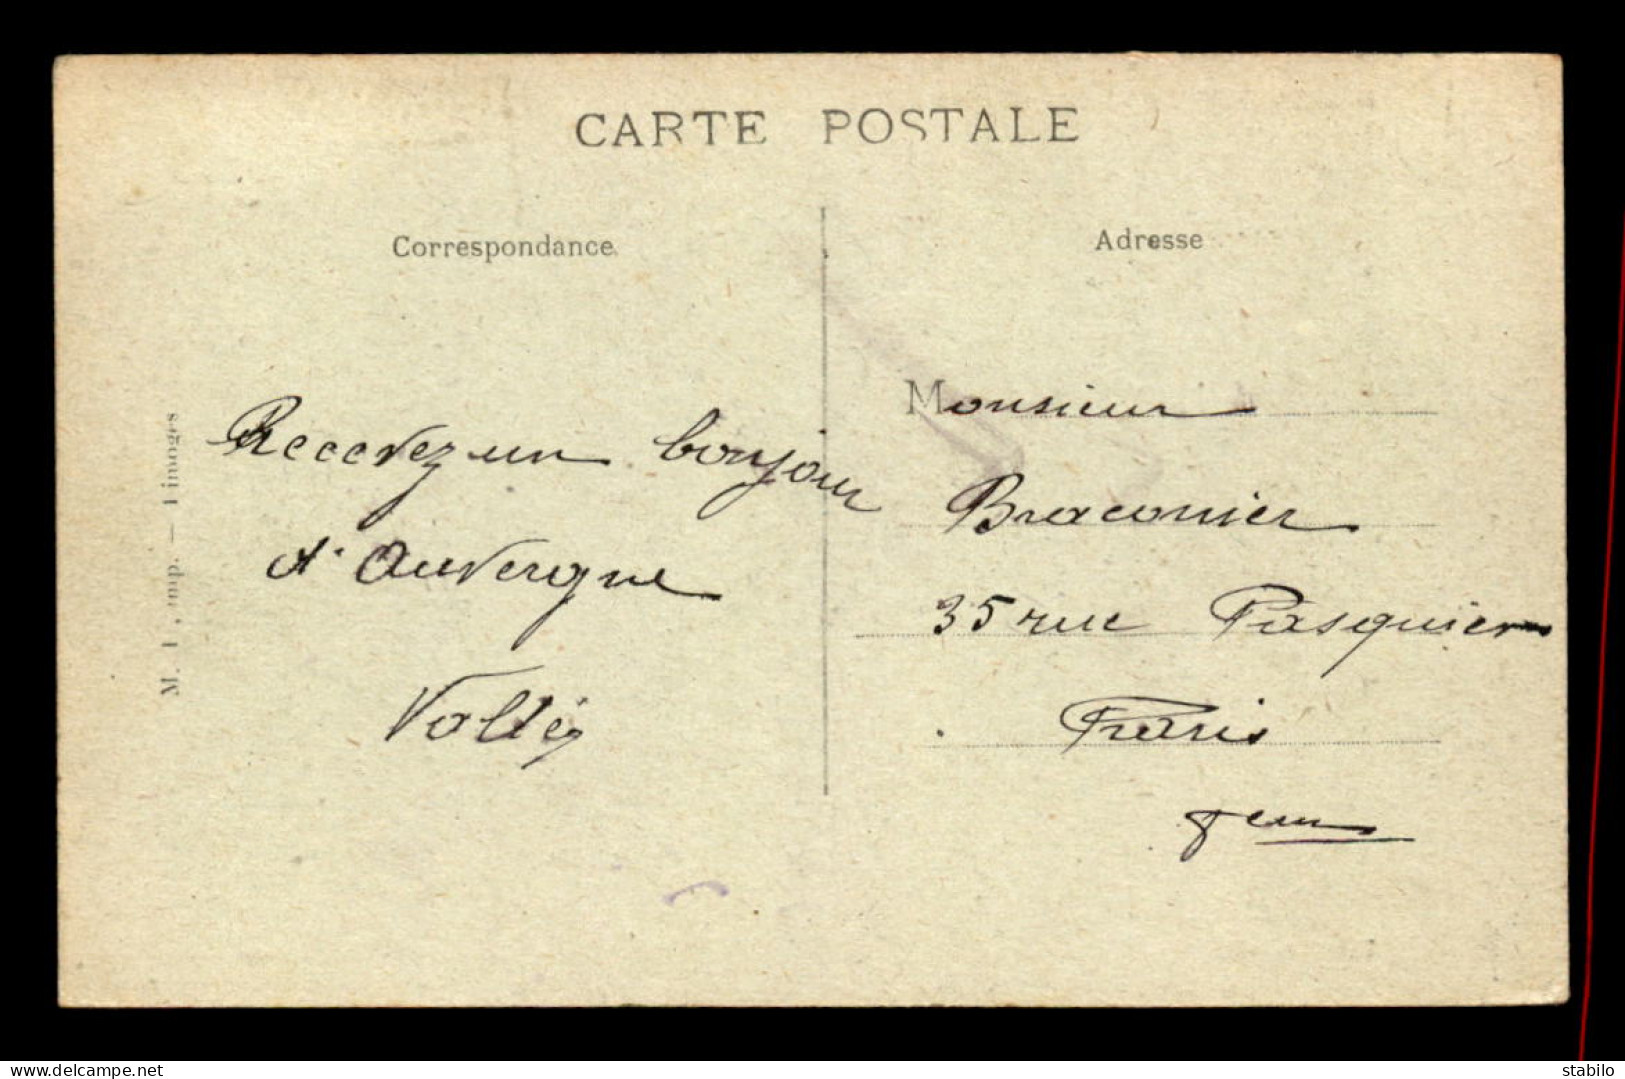 CARTE POSTALE
Correspondance
Recevez un bonjour
d'Auvergne
M. , imp. — Limoges
Adresse
Monsieur
Braconier
35 rue Pasquier
Paris
8em
www.delcampe.net
stabilo